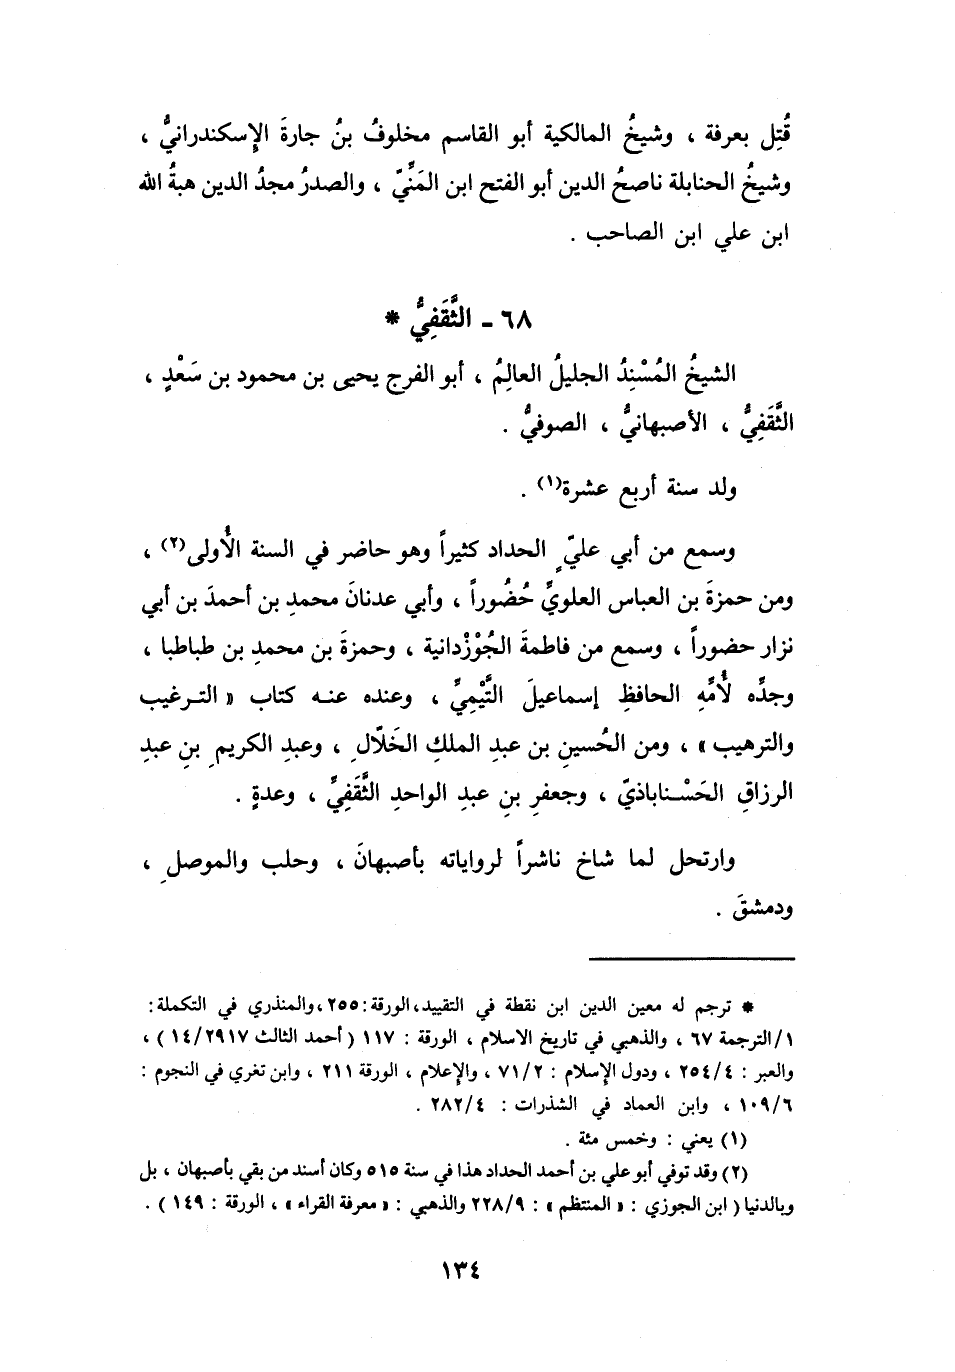 قُتِل بعرفة ، وشيخُ المالكية أبو القاسم مخلوفُ بنُ جارةَ الإِسكندرانيُّ ،
وشيخُ الحنابلة ناصحُ الدين أبو الفتح ابن المَنِّيّ ، والصدرُ مجدُ الدين هبةُ الله
ابن علي ابن الصاحب .
٦٨ ـ الثَّقَفِيُّ *
الشيخُ المُسْنِدُ الجليلُ العالِمُ ، أبو الفرج يحيى بن محمود بن سَعْدٍ ،
الثَّقَفِيُّ ، الأصبهانيُّ ، الصوفيُّ .
ولد سنة أربع عشرة(١) .
وسمع من أبي عليٍّ الحداد كثيراً وهو حاضر في السنة الأُولى(٢) ،
ومن حمزةَ بن العباس العلويِّ حُضُوراً ، وأبي عدنانَ محمدِ بن أحمدَ بن أبي
نزار حضوراً ، وسمع من فاطمةَ الجُوْزْدانية ، وحمزةَ بن محمدِ بن طباطبا ،
وجدِّه لأُمِّهِ الحافظِ إسماعيلَ التَّيْمِيِّ ، وعنده عنه كتاب « الترغيب
والترهيب » ، ومن الحُسينِ بن عبدِ الملكِ الخَلّالِ ، وعبدِ الكريمِ بنِ عبدِ
الرزاقِ الحَسْناباذيّ ، وجعفرِ بنِ عبدِ الواحدِ الثَّقَفِيِّ ، وعدةٍ .
وارتحل لما شاخ ناشراً لرواياته بأصبهانَ ، وحلب والموصلِ ،
ودمشقَ .
* ترجم له معين الدين ابن نقطة في التقييد، الورقة: ٢٥٥، والمنذري في التكملة:
١/الترجمة ٦٧ ، والذهبي في تاريخ الاسلام ، الورقة : ١١٧ ( أحمد الثالث ١٤/٢٩١٧ ) ،
والعبر : ٢٥٤/٤ ، ودول الإسلام : ٧١/٢ ، والإعلام ، الورقة ٢١١ ، وابن تغري في النجوم :
١٠٩/٦ ، وابن العماد في الشذرات : ٢٨٢/٤ .
(١) يعني : وخمس مئة .
(٢) وقد توفي أبو علي بن أحمد الحداد هذا في سنة ٥١٥ وكان أسند من بقي بأصبهان ، بل
وبالدنيا ( ابن الجوزي : « المنتظم » : ٢٢٨/٩ والذهبي : « معرفة القراء » ، الورقة : ١٤٩ ) .
١٣٤